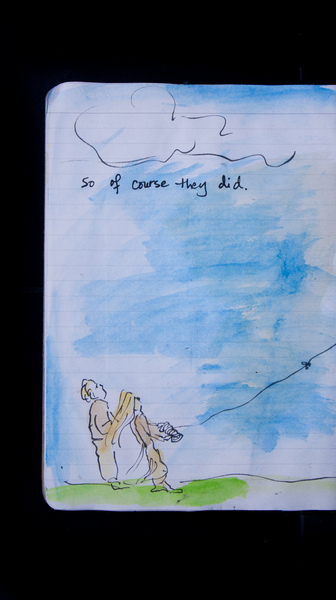 so of course they did.